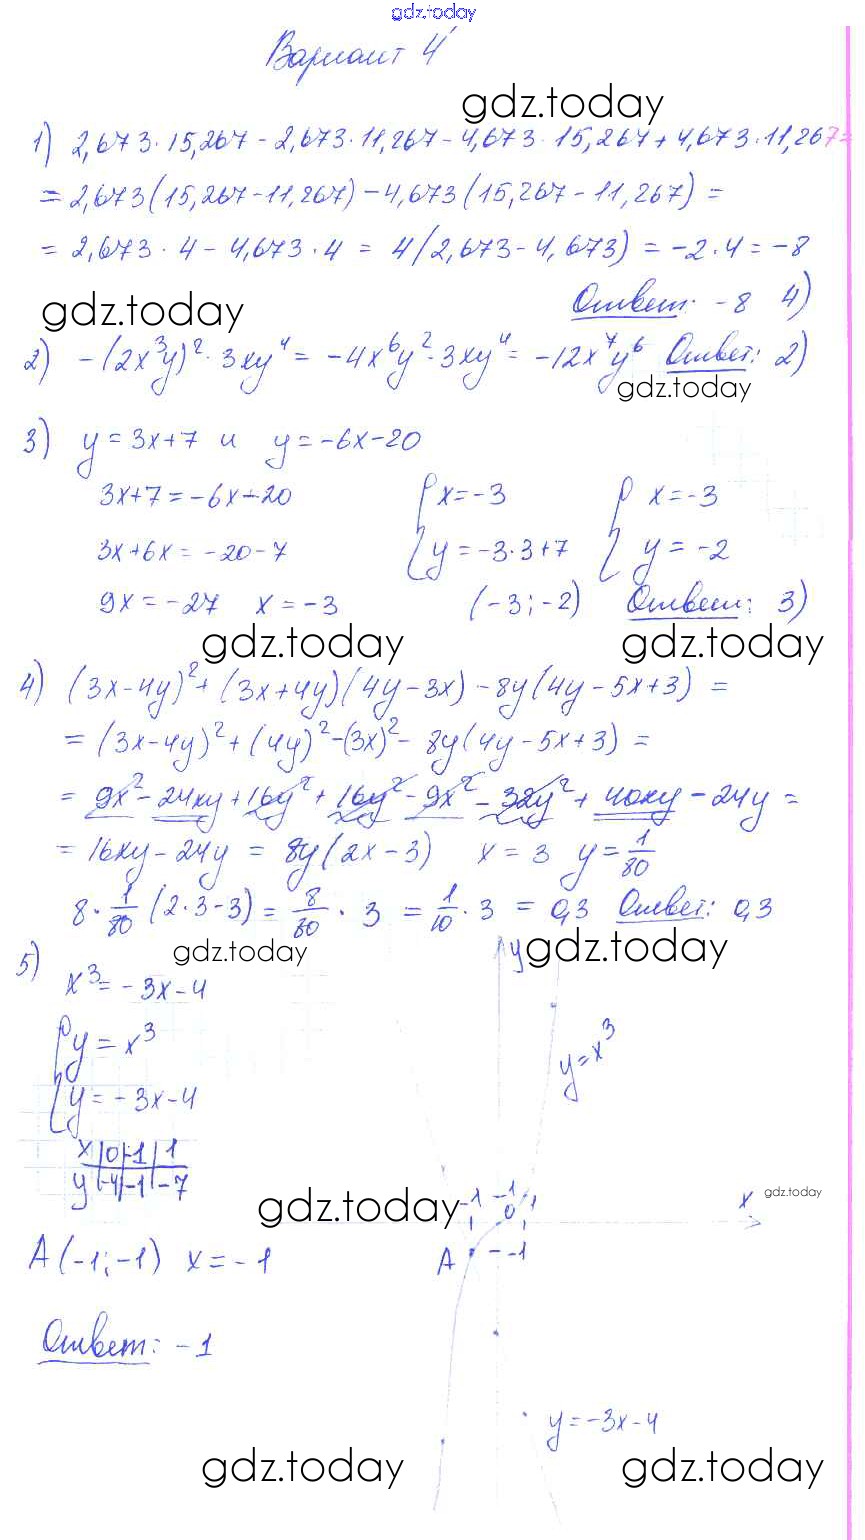 gdz.today
Вариант 4
gdz.today
1) 2,673·15,267 - 2,673·11,267 - 4,673·15,267 + 4,673·11,267=
= 2,673(15,267-11,267) - 4,673(15,267-11,267) =
= 2,673·4 - 4,673·4 = 4(2,673-4,673) = -2·4 = -8
gdz.today
Ответ: -8 4)
2) -(2x³y)²·3xy⁴ = -4x⁶y²·3xy⁴ = -12x⁷y⁶ Ответ: 2)
gdz.today
3) y = 3x+7 и y = -6x-20
3x+7 = -6x-20 { x=-3 { x=-3
3x+6x = -20-7 y = -3·3+7 y = -2
9x = -27 x = -3 (-3;-2) Ответ: 3)
gdz.today gdz.today
4) (3x-4y)² + (3x+4y)(4y-3x) - 8y(4y-5x+3) =
= (3x-4y)² + (4y)² - (3x)² - 8y(4y-5x+3) =
= 9x² - 24xy + 16y² + 16y² - 9x² - 32y² + 40xy - 24y =
= 16xy - 24y = 8y(2x-3) x = 3 y = 1/80
8·1/80 (2·3-3) = 8/80 · 3 = 1/10 · 3 = 0,3 Ответ: 0,3
gdz.today y gdz.today
5) x³ = -3x-4
{ y = x³ y=x³
y = -3x-4
x 0 -1 1
y -4 -1 -7
gdz.today -1 -1 0 1 x gdz.today
A(-1;-1) x = -1 A -1
Ответ: -1
y = -3x-4
gdz.today gdz.today